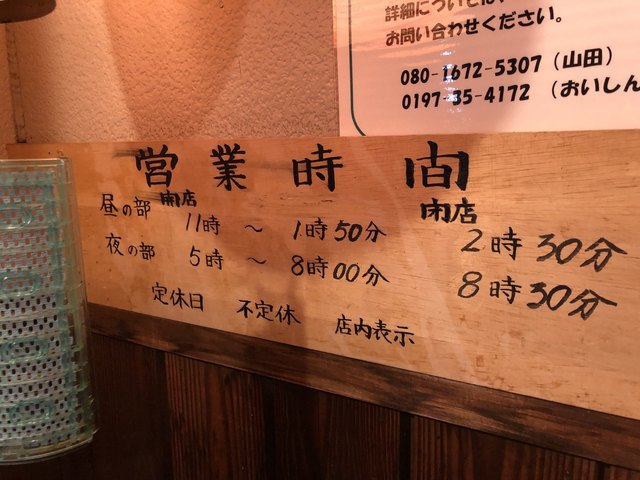 詳細については、
お問い合わせください。
080-1672-5307（山田）
0197-35-4172 （おいしん
営業時間
開店 閉店
昼の部 11時 ～ 1時50分 2時30分
夜の部 5時 ～ 8時00分 8時30分
定休日 不定休 店内表示